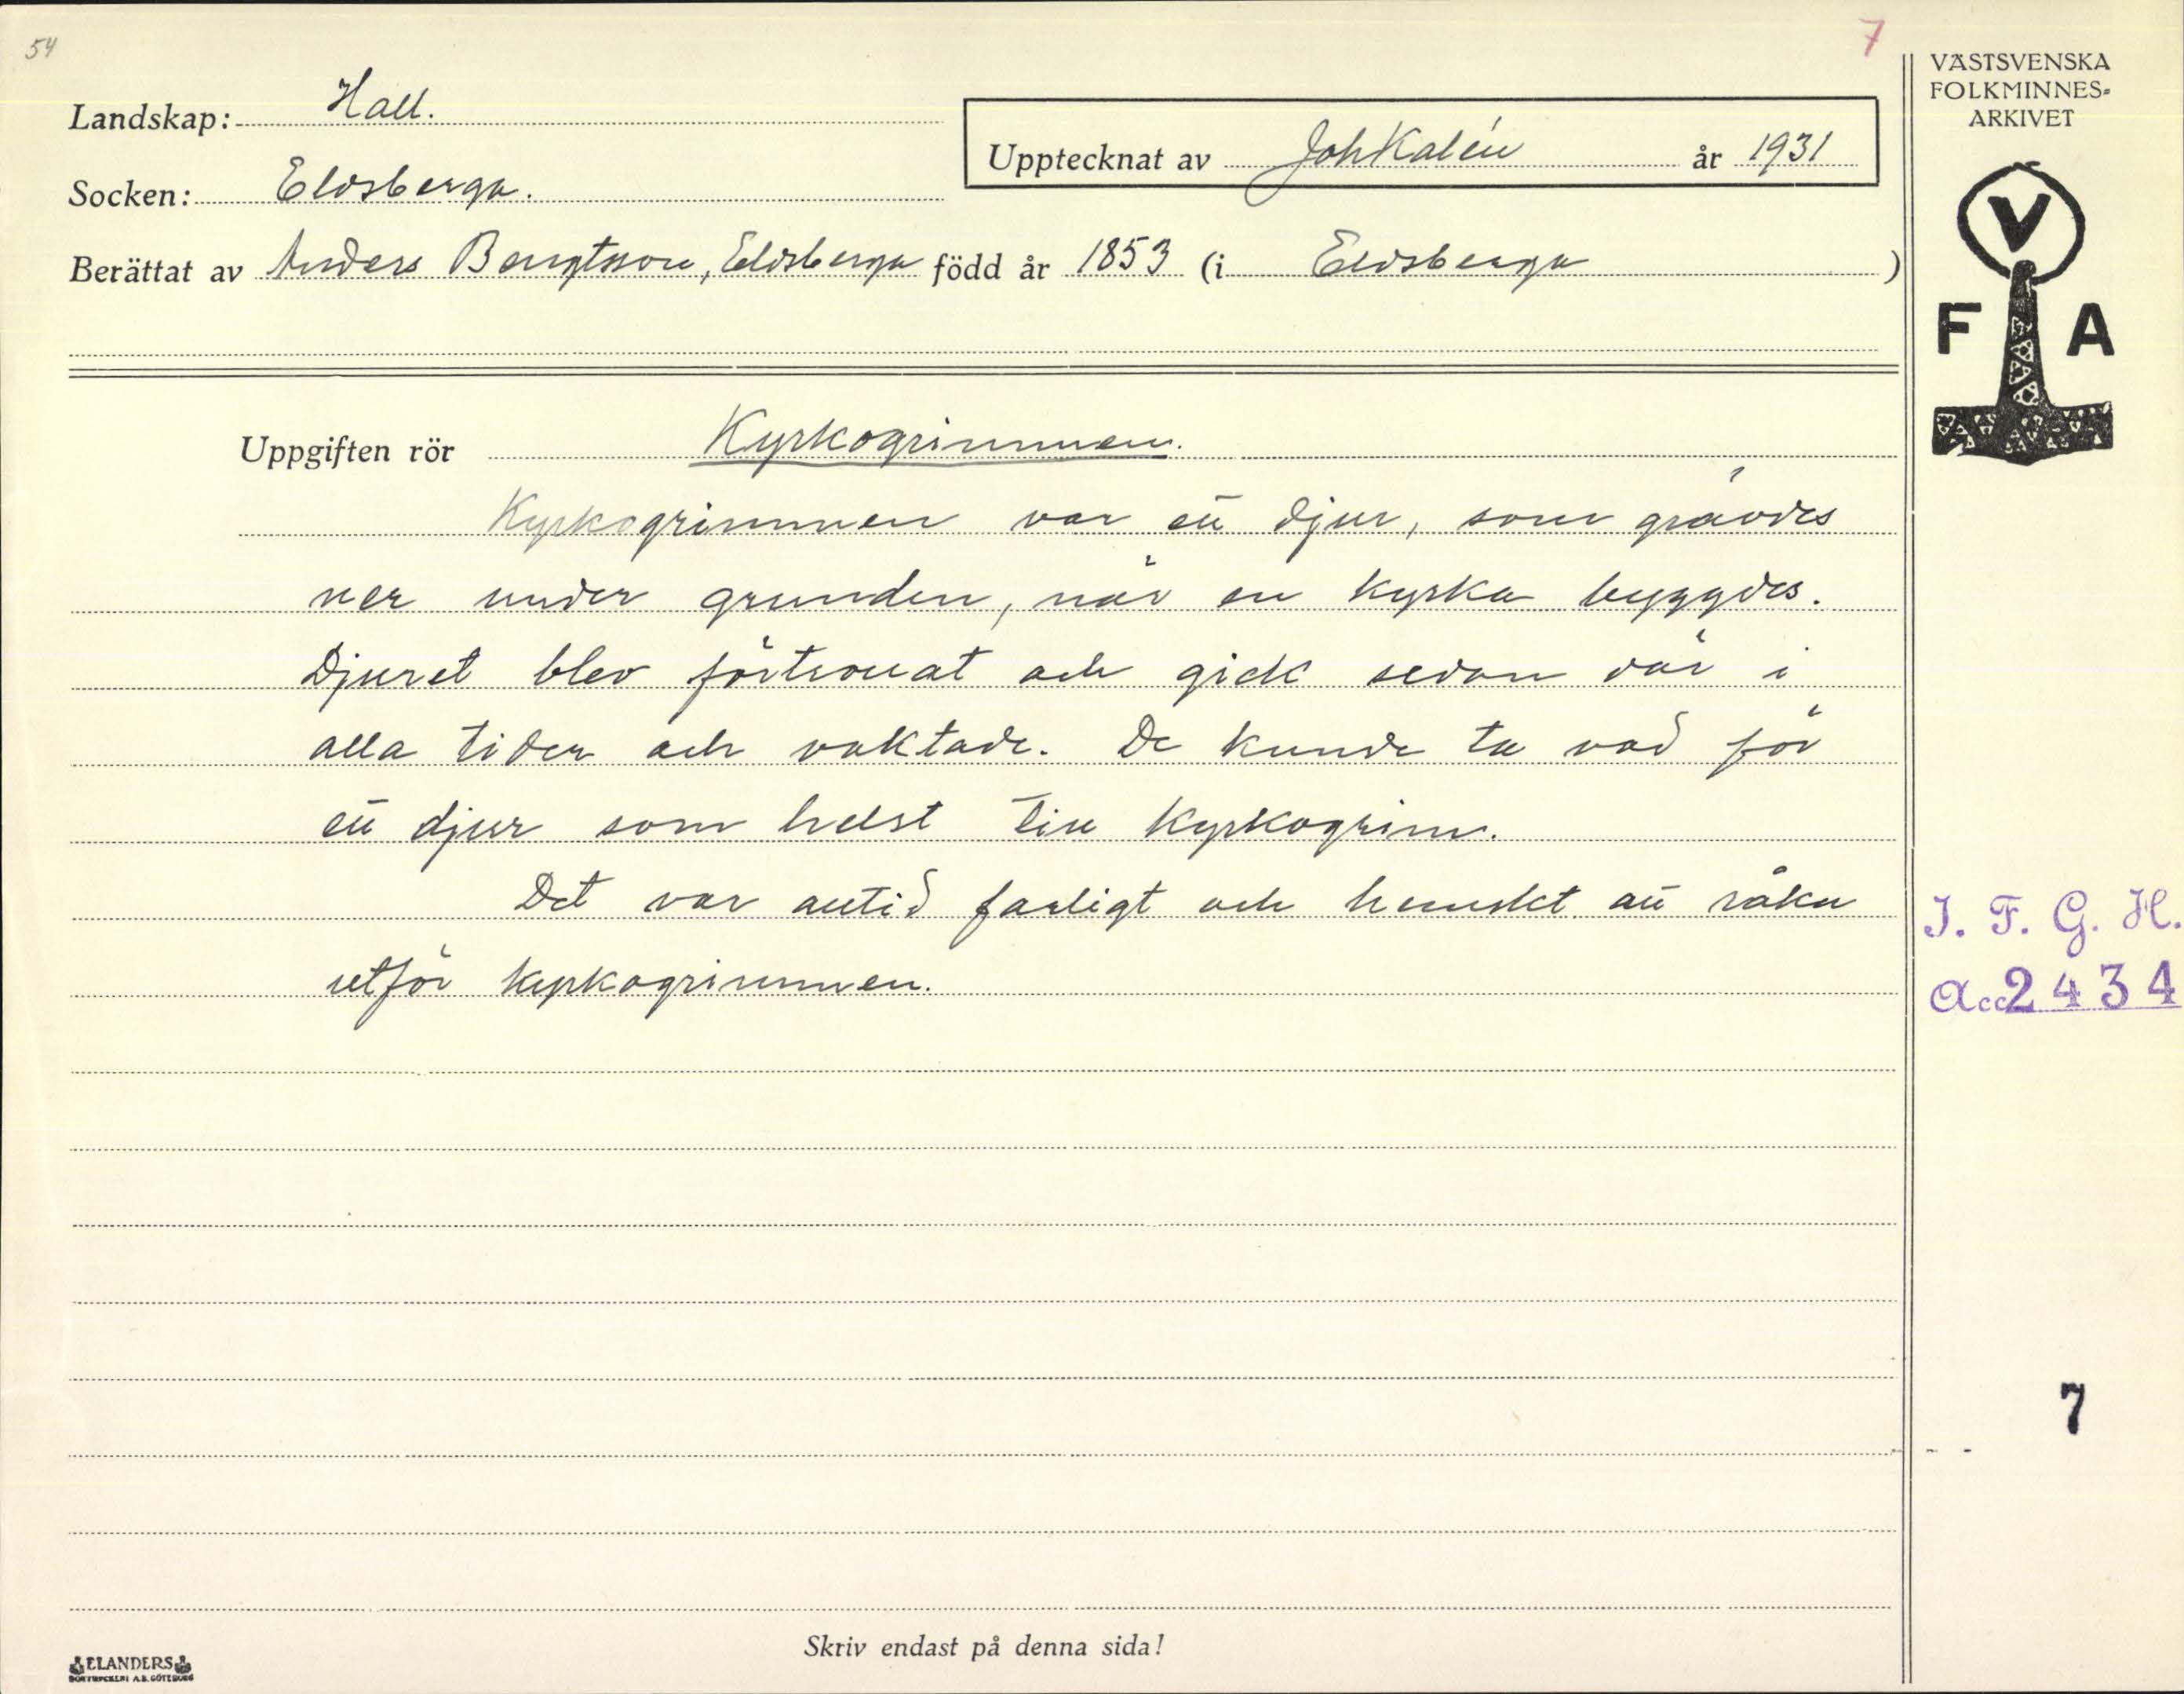 54
7
Landskap: Hall.
Socken: Eldsberga.
Upptecknat av Joh Kalén år 1931
Berättat av Anders Bengtsson, Eldsberga född år 1853 (i Eldsberga)
Uppgiften rör Kyrkogrimmen.
Kyrkogrimmen var ett djur, som grävdes
ner under grunden, när en kyrka byggdes.
Djuret blev förtrollat och gick sedan där i
alla tider och vaktade. De kunde ta vad för
ett djur som helst till kyrkogrim.
Det var alltid farligt och hemskt att råka
utför kyrkogrimmen.
Skriv endast på denna sida!
ELANDERS
BOKTRYCKERI A.B. GÖTEBORG
VÄSTSVENSKA
FOLKMINNES-
ARKIVET
V
F A
I. F. G. H.
Acc 2434
7